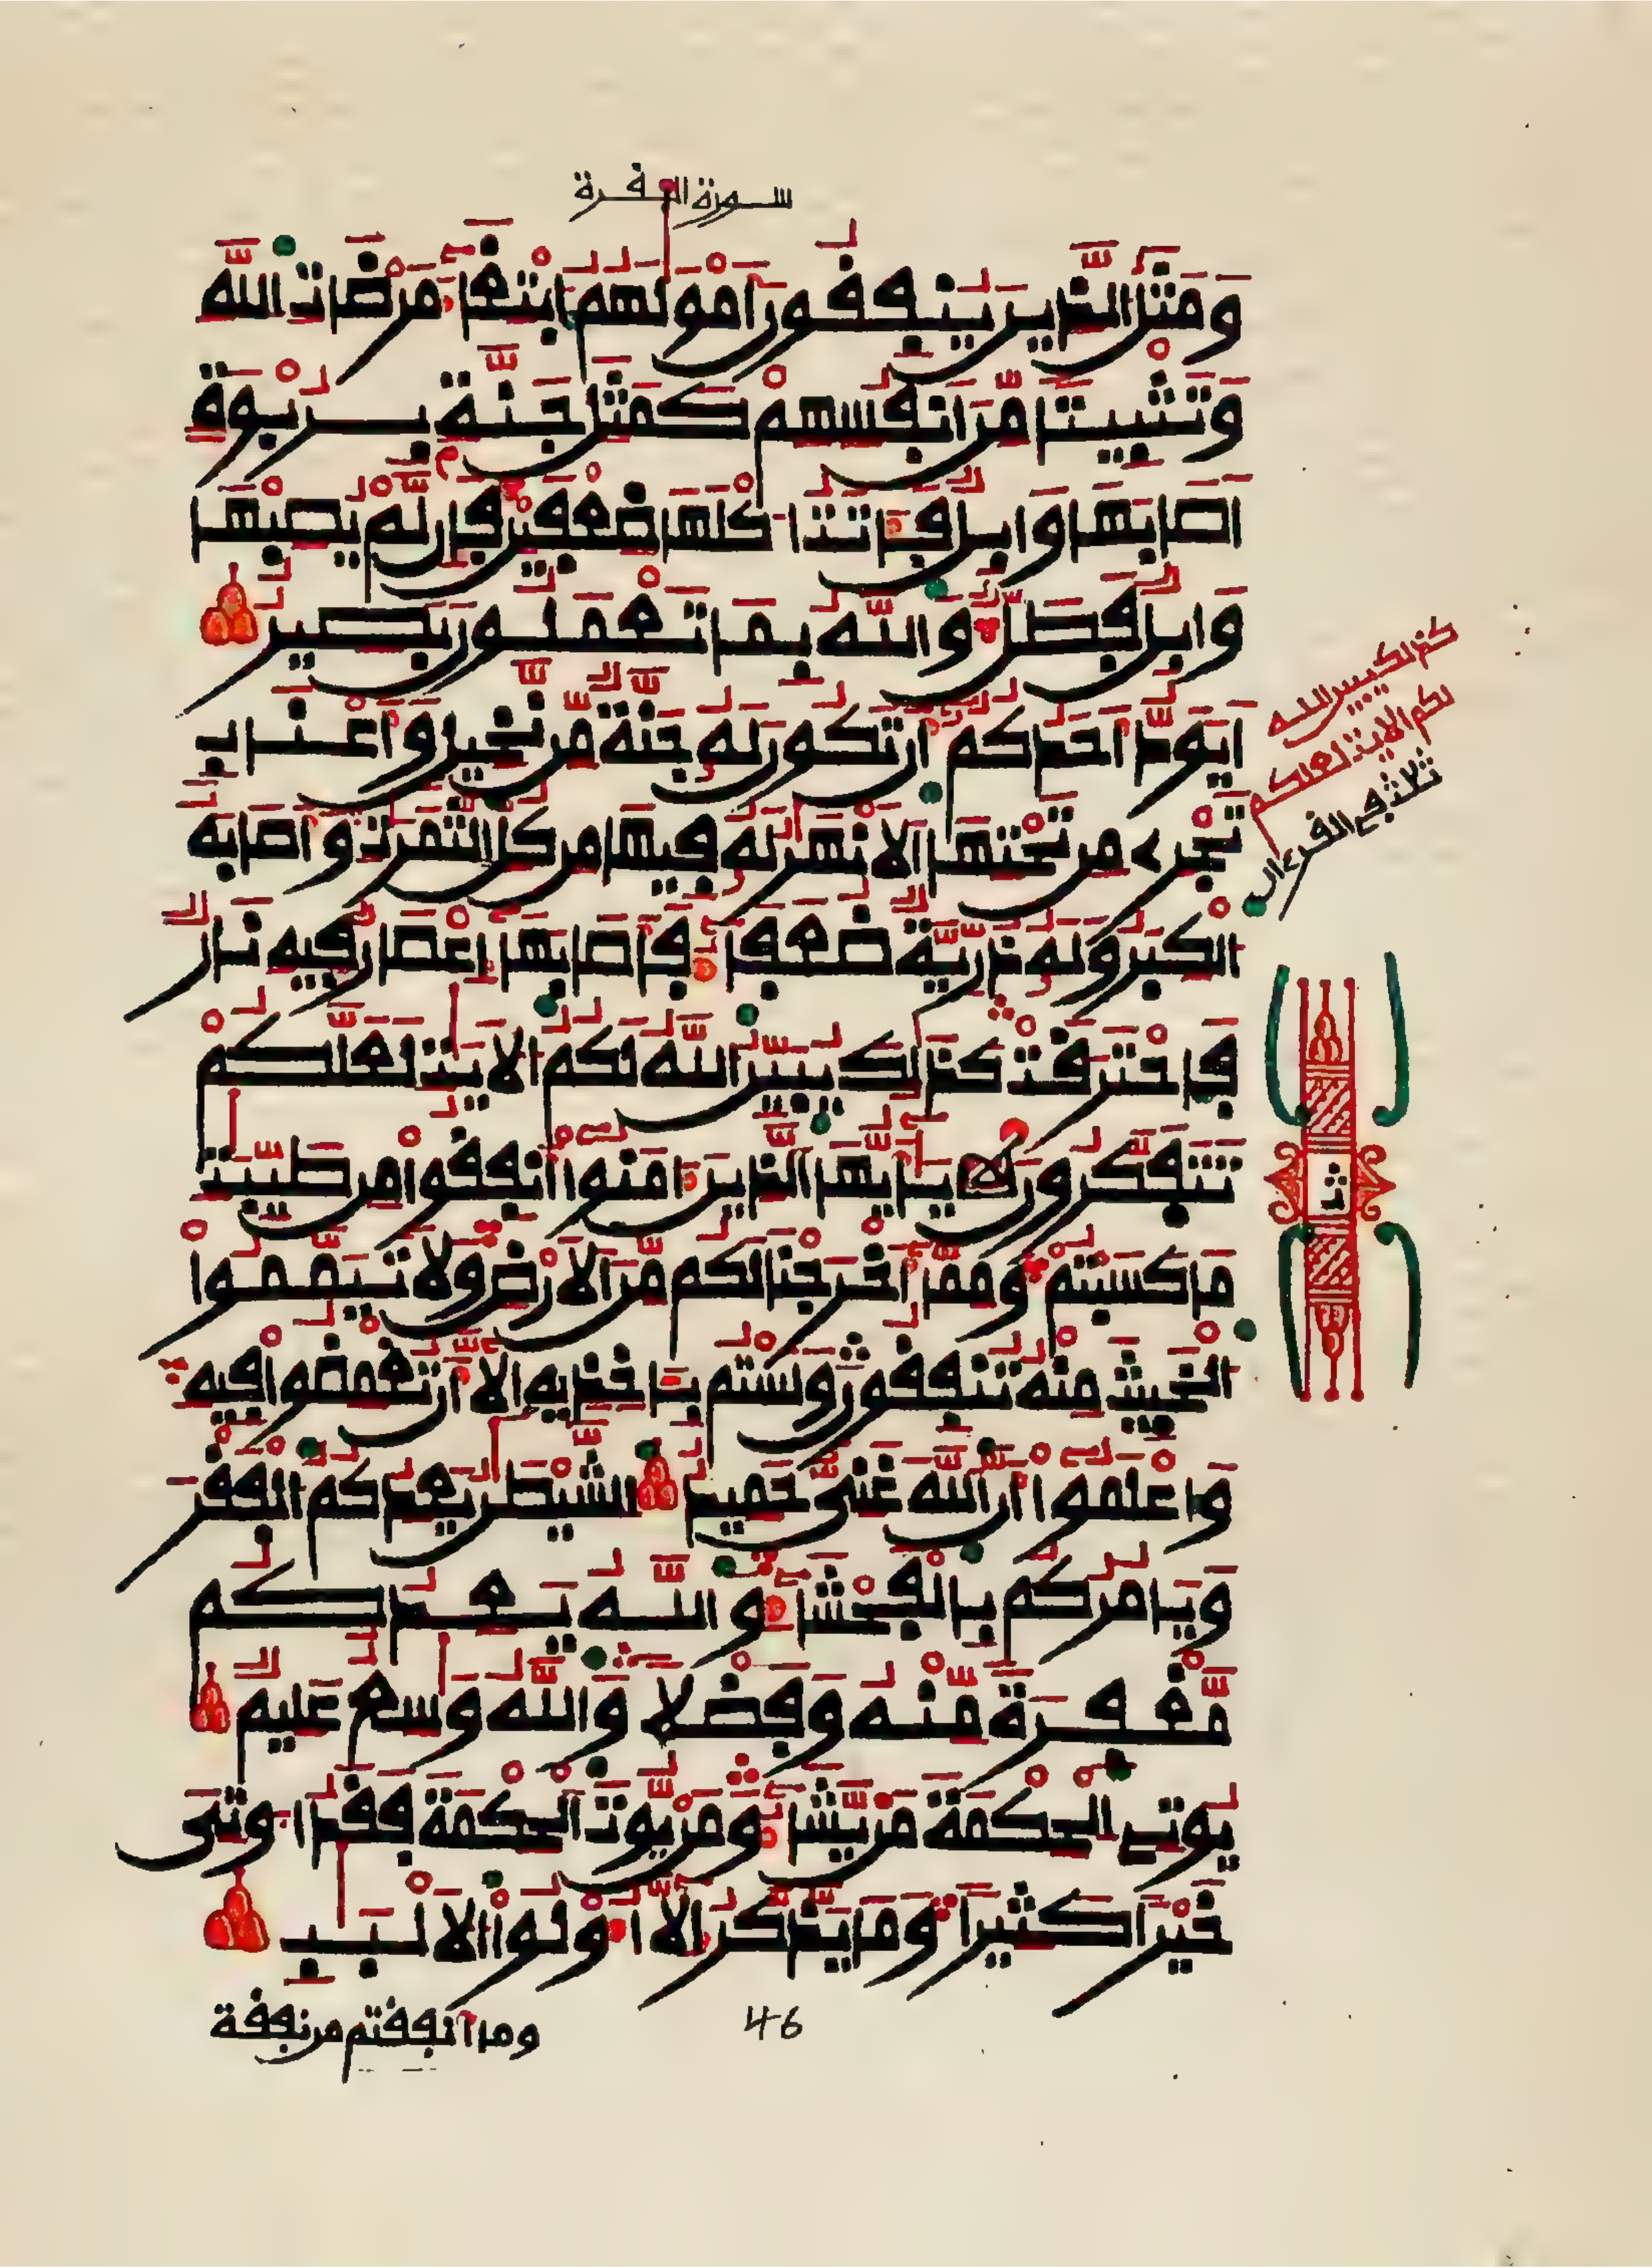 سورة البقرة
وَمَثَلُ الَّذِينَ يُنفِقُونَ أَمْوَٰلَهُمُ ابْتِغَآءَ مَرْضَاتِ اللَّهِ
وَتَثْبِيتًا مِّنَ اَنفُسِهِمْ كَمَثَلِ جَنَّةٍ بِرُبْوَةٍ
اَصَابَهَا وَابِلٌ فَـَٔاتَتُ ا۟كْلَهَا ضِعْفَيْنِ فَإِن لَّمْ يُصِبْهَا
وَابِلٌ فَطَلٌّ وَاللَّهُ بِمَا تَعْمَلُونَ بَصِيرٌ
اَيَوَدُّ أَحَدُكُمُۥٓ أَن تَكُونَ لَهُۥ جَنَّةٌ مِّن نَّخِيلٍ وَأَعْنَابٍ
تَجْرِے مِن تَحْتِهَا اَلَانْهَٰرُ لَهُۥ فِيهَا مِن كُلِّ الثَّمَرَٰتِ وَأَصَابَهُ
الْكِبَرُ وَلَهُۥ ذُرِّيَّةٌ ضُعَفَآءُ فَأَصَابَهَآ إِعْصَارٌ فِيهِ نَارٌ
فَاحْتَرَقَتْ كَذَٰلِكَ يُبَيِّنُ اللَّهُ لَكُمُ الَايَٰتِ لَعَلَّكُمْ
تَتَفَكَّرُونَ يَٰٓأَيُّهَا الَّذِينَ ءَامَنُوٓا أَنفِقُوا مِن طَيِّبَٰتِ
مَا كَسَبْتُمْ وَمِمَّآ أَخْرَجْنَا لَكُم مِّنَ الَارْضِ وَلَا تَيَمَّمُوا۟
الْخَبِيثَ مِنْهُ تُنفِقُونَ وَلَسْتُم بِـَٔاخِذِيهِ إِلَّآ أَن تُغْمِضُوا فِيهِ
وَاعْلَمُوٓا أَنَّ اللَّهَ غَنِىٌّ حَمِيدٌ الشَّيْطَٰنُ يَعِدُكُمُ الْفَقْرَ
وَيَامُرُكُم بِالْفَحْشَآءِ وَاللَّهُ يَعِدُكُم
مَّغْفِرَةً مِّنْهُ وَفَضْلًا وَاللَّهُ وَٰسِعٌ عَلِيمٌ
يُوتِى الْحِكْمَةَ مَنْ يَّشَآءُ وَمَنْ يُّوتَ الْحِكْمَةَ فَقَدُ ا۟وتِىَ
خَيْرًا كَثِيرًا وَمَا يَذَّكَّرُ إِلَّآ أُوْلُوا۟ الَالْبَٰبِ
كذلك يبين الله
لكم الايت لعلكم
ثلث فى القرءان
ثلث
ومآ أنفقتم من نفقة
46